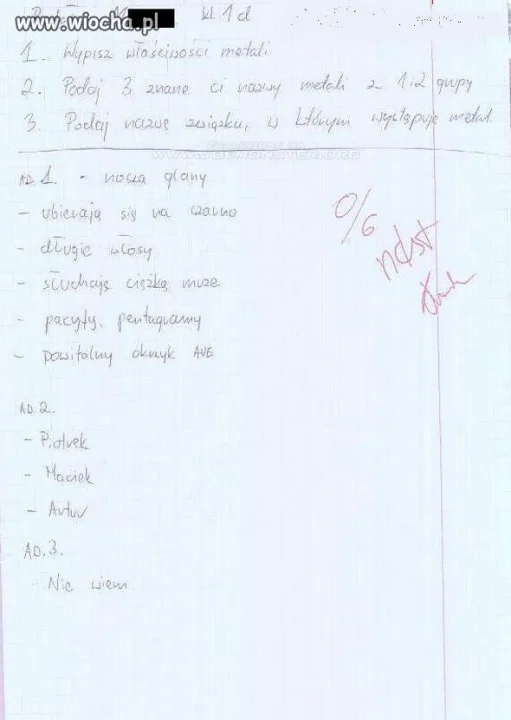 www.wiocha.pl
kl 1d
1. Wypisz właściwości metali
2. Podaj 3 znane ci nazwy metali z 1 i 2 grupy
3. Podaj nazwę związku, w którym występuje metal
AD 1. - noszą glany
- ubierają się na czarno
- długie włosy
- słuchają ciężką muze
- pacyfy, pentagramy
- powitalny okrzyk AVE
0/6
ndst
AD.2.
- Piotrek
- Maciek
- Artur
AD.3.
Nie wiem